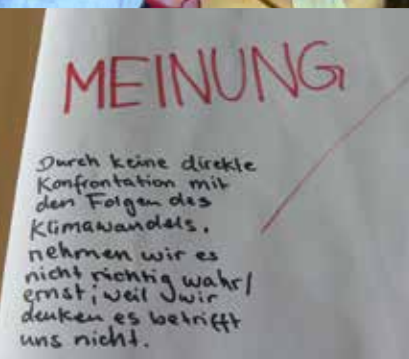 MEINUNG
Durch keine direkte
Konfrontation mit
den Folgen des
Klimawandels,
nehmen wir es
nicht richtig wahr/
ernst, weil wir
denken es betrifft
uns nicht.